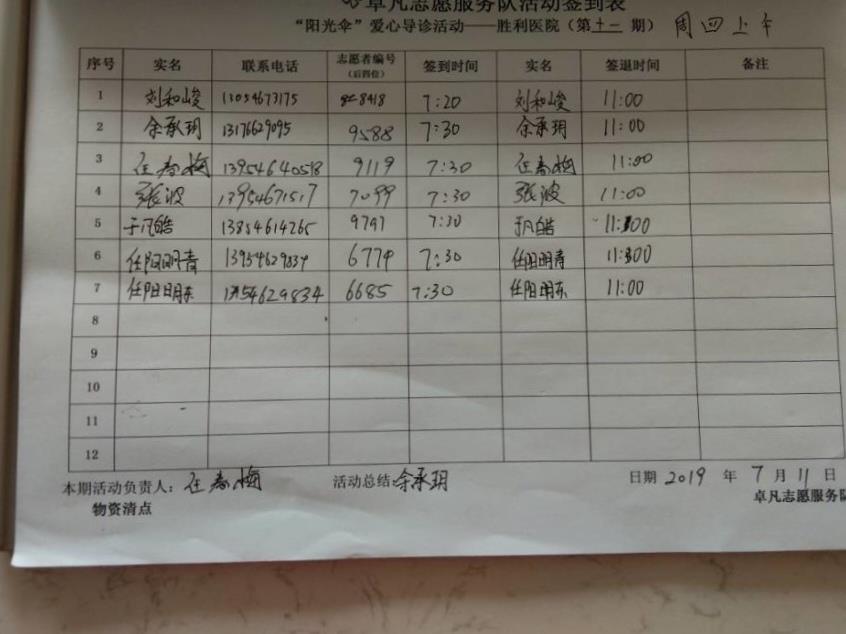 卓凡志愿服务队活动签到表
“阳光伞”爱心导诊活动——胜利医院（第十一期） 周四上午
序号 实名 联系电话 志愿者编号（后四位） 签到时间 实名 签退时间 备注
1 刘和峻 13054673175 8418 7:20 刘和峻 11:00
2 余承玥 13176629095 9588 7:30 余承玥 11:00
3 任春梅 13954640518 9119 7:30 任春梅 11:00
4 张波 13954671517 7099 7:30 张波 11:00
5 于凡皓 13854614265 9797 7:30 于凡皓 11:00
6 任阳明青 13954629834 6774 7:30 任阳明青 11:300
7 任阳明东 13954629834 6685 7:30 任阳明东 11:00
8
9
10
11
12
本期活动负责人：任春梅 活动总结：余承玥 日期 2019 年 7 月 11 日
物资清点 卓凡志愿服务队